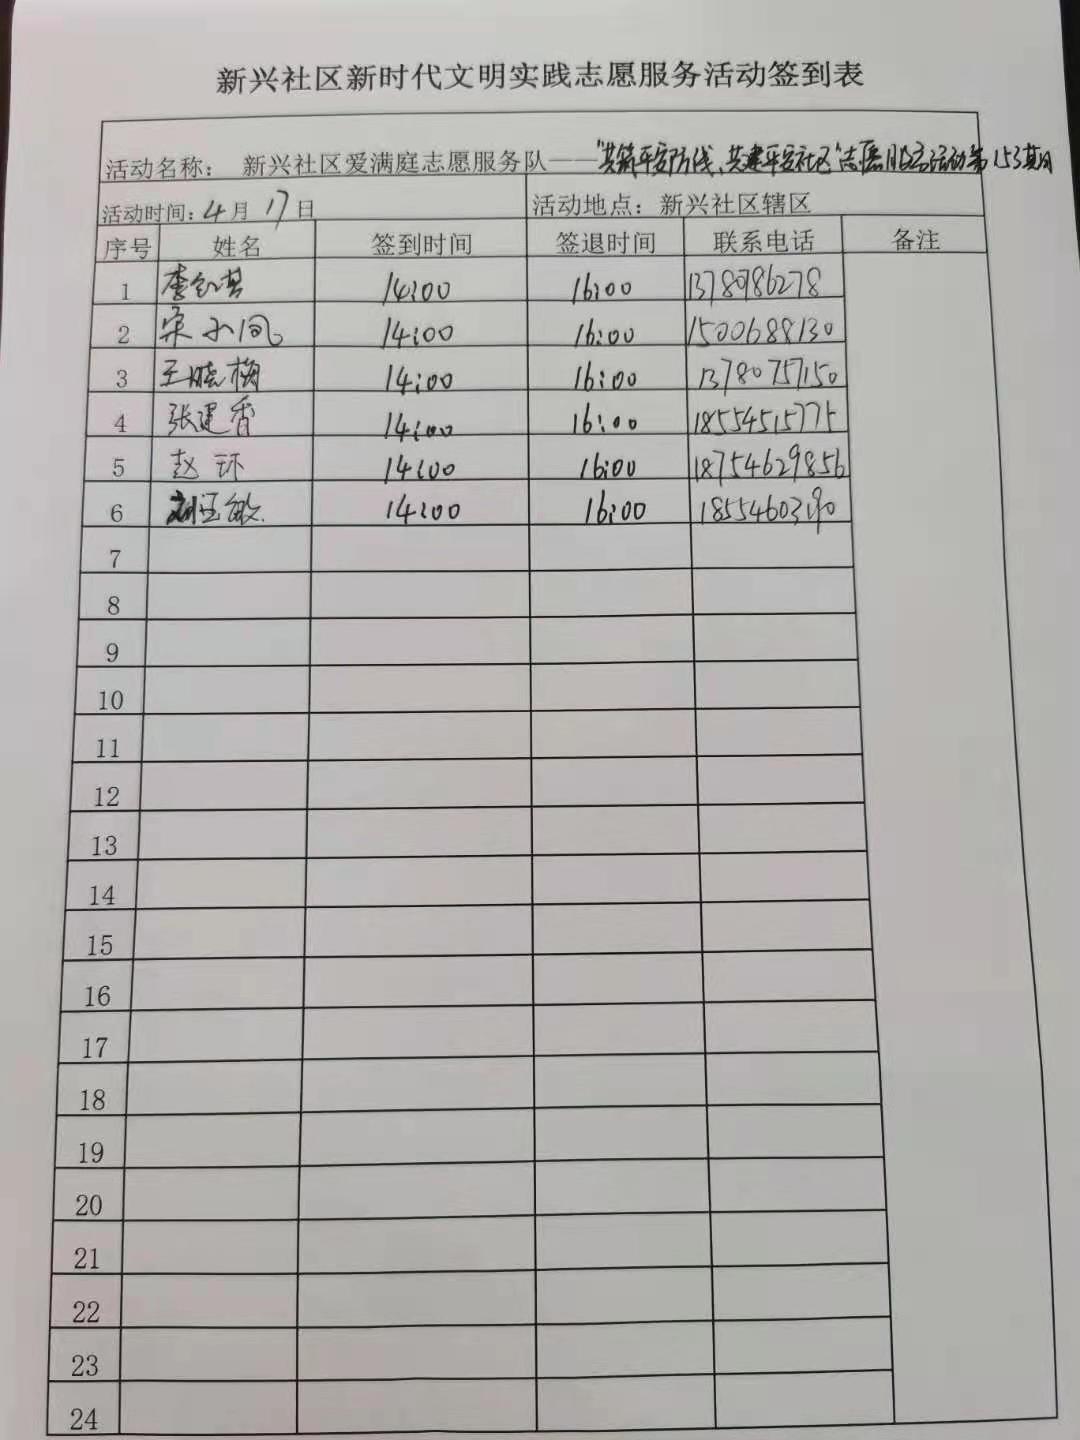 新兴社区新时代文明实践志愿服务活动签到表
活动名称： 新兴社区爱满庭志愿服务队——“共筑平安防线、共建平安社区”志愿服务活动第153期
活动时间：4月17日 活动地点：新兴社区辖区
序号 姓名 签到时间 签退时间 联系电话 备注
1 李红 14:00 16:00
2 宋小凤 14:00 16:00 1500688130
3 王晓梅 14:00 16:00 13780757150
4 张建香 14:00 16:00 18554515775
5 赵环 14:00 16:00 18754629856
6 刘玉敏 14:00 16:00
7
8
9
10
11
12
13
14
15
16
17
18
19
20
21
22
23
24